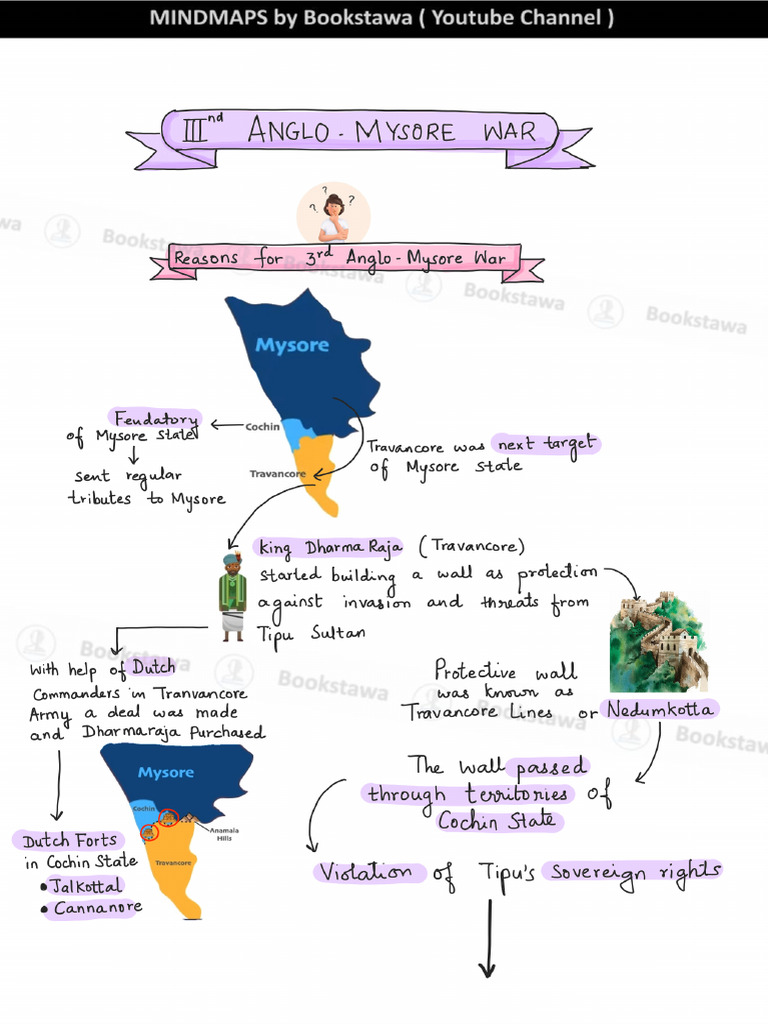 MINDMAPS by Bookstawa ( Youtube Channel )
IIInd ANGLO-MYSORE WAR
? ? ?
Reasons for 3rd Anglo-Mysore War
Mysore
Cochin
Travancore
Feudatory
of Mysore state
sent regular
tributes to Mysore
Travancore was next target
of Mysore state
King Dharma Raja (Travancore)
started building a wall as protection
against invasion and threats from
Tipu Sultan
With help of Dutch
Commanders in Tranvancore
Army a deal was made
and Dharmaraja Purchased
Protective wall
was known as
Travancore Lines or Nedumkotta
Mysore
Cochin
Anamala
Hills
Travancore
Dutch Forts
in Cochin State
• Jalkottal
• Cannanore
The wall passed
through territories of
Cochin State
Violation of Tipu's Sovereign rights
wa
Bookstawa
Bookstawa
Bookstawa
Bookstawa
Bookstawa
Bookstawa
Bookstawa
Bookstawa